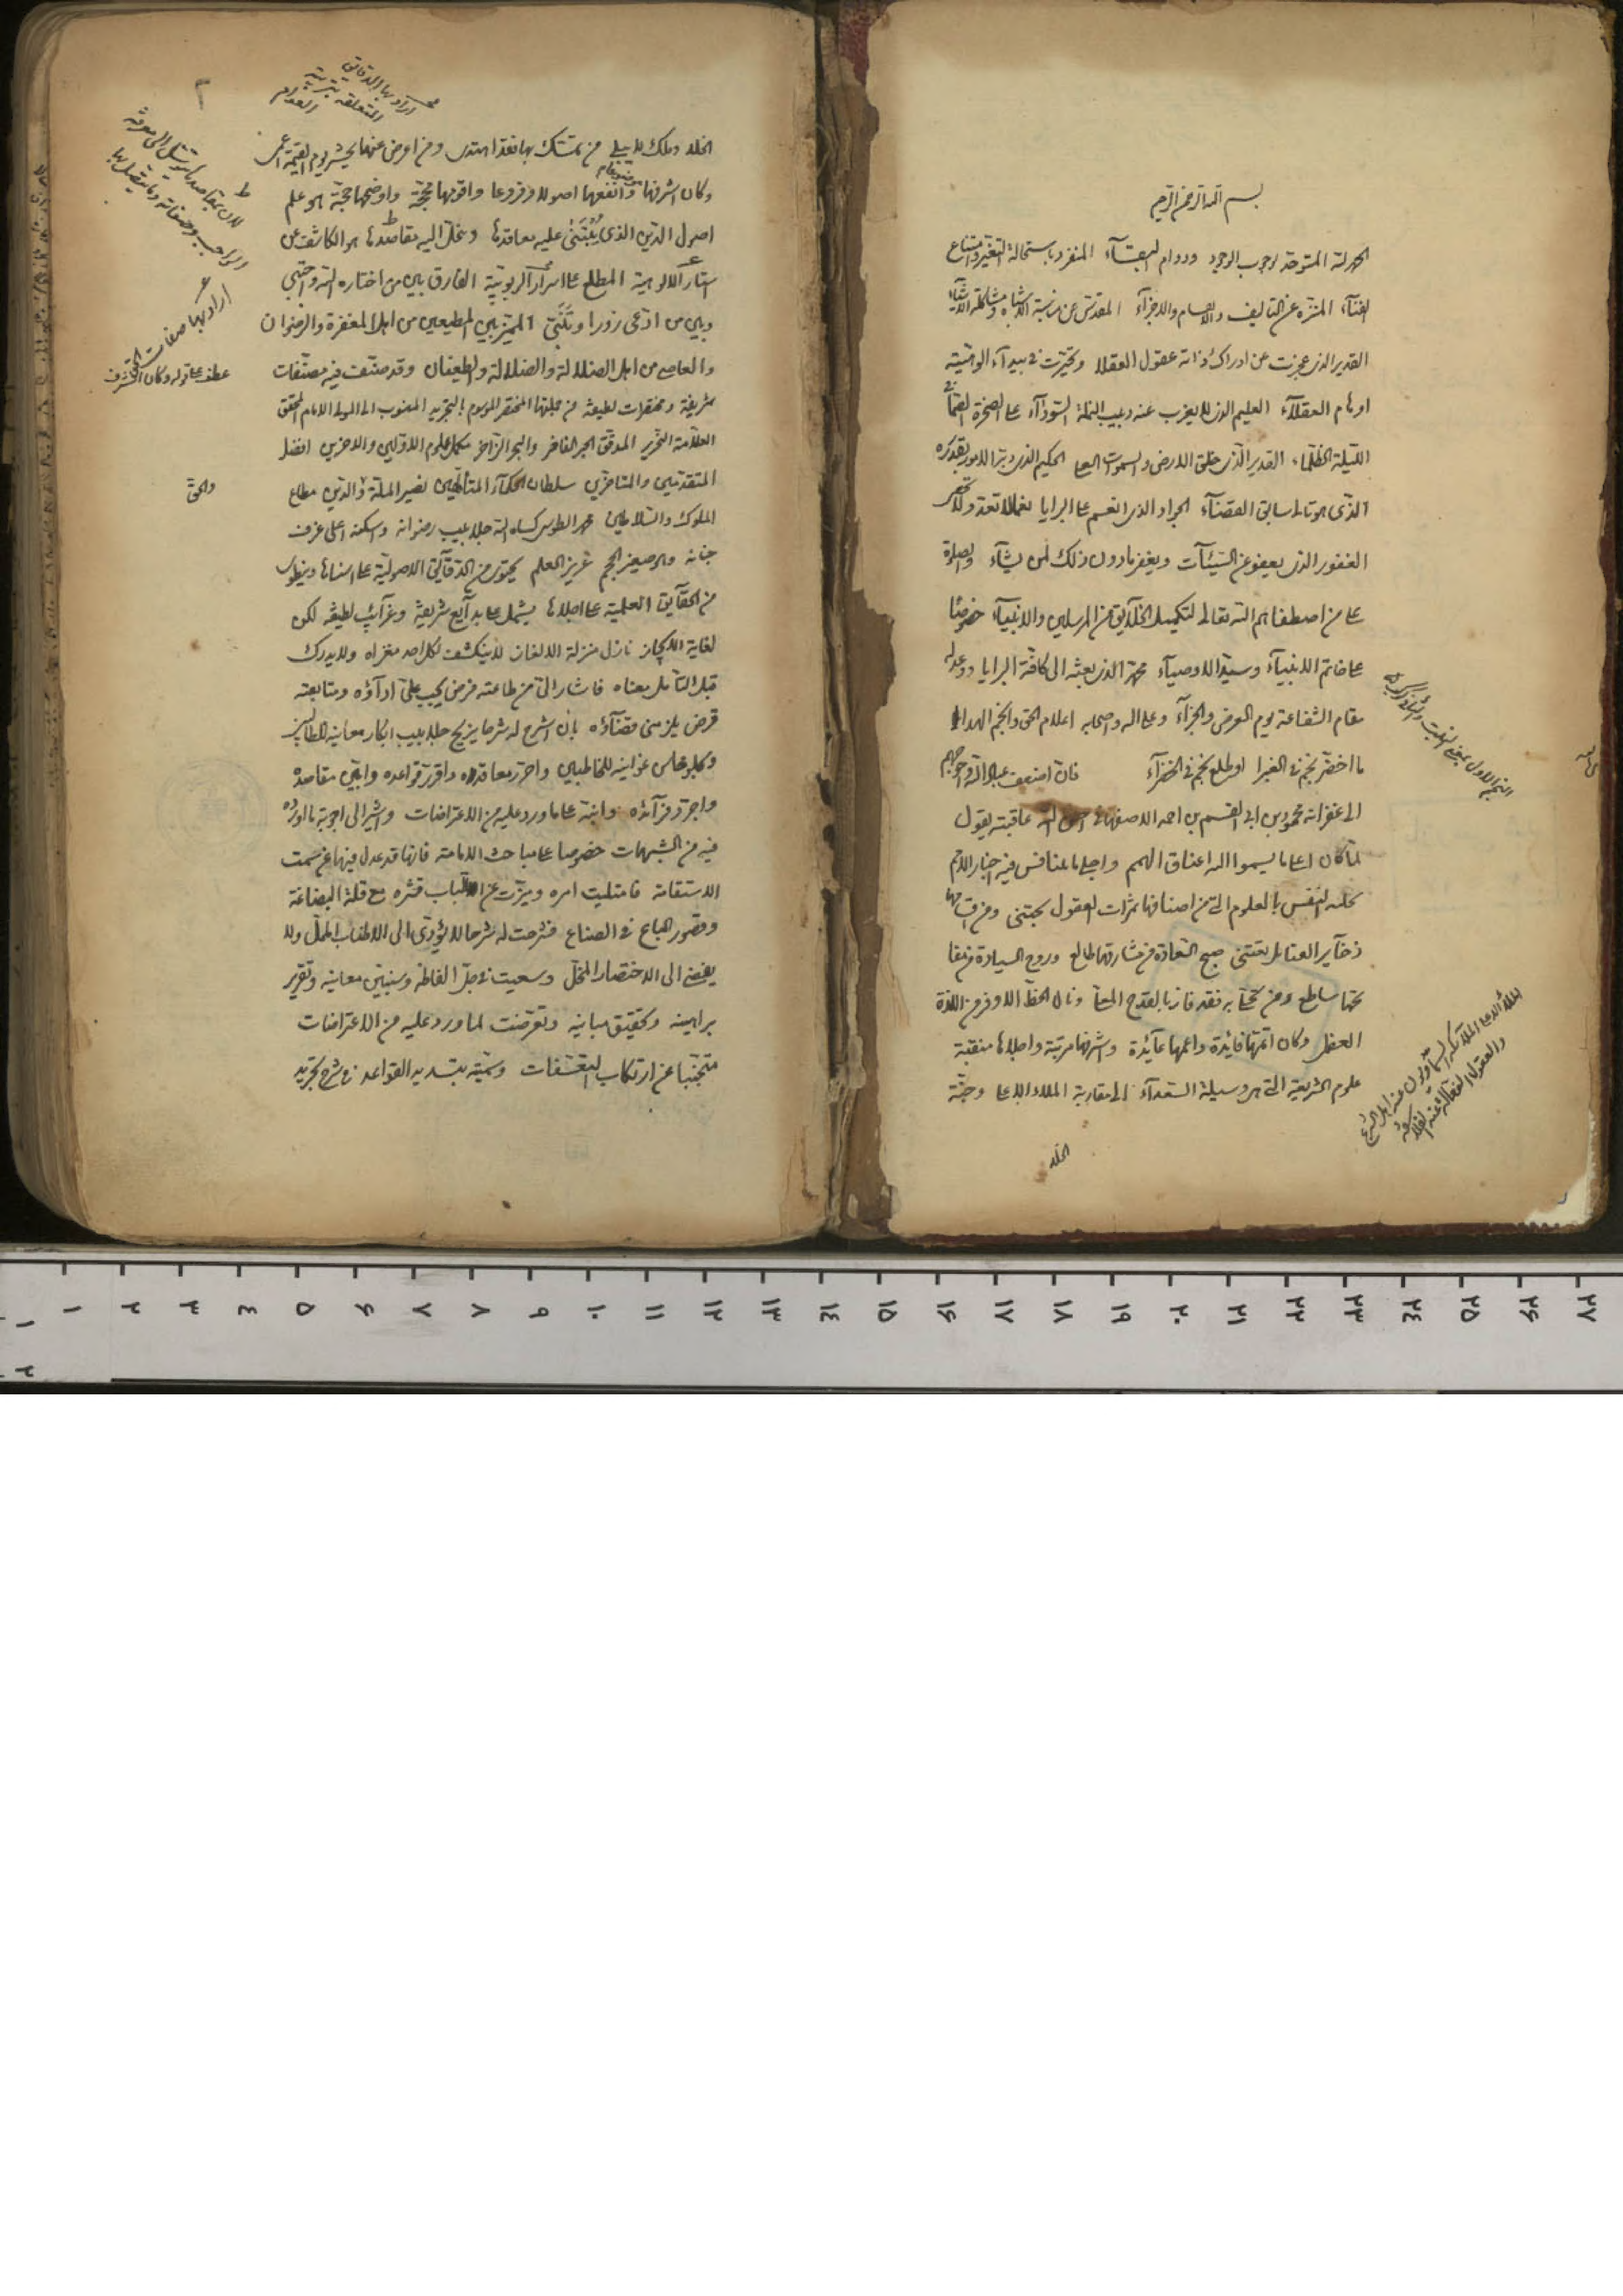 بسم الله الرحمن الرحيم
الحمد لله المتوحد بوجوب الوجود ودوام البقآء المتفرد باستحالة التغير وامتناع
الفنآء المنزه عن التاليف والاجزآء المقدس عن مناسبة الاشباه ومشاكلة
القدير الذى عجزت عن ادراك ذاته عقول العقلا وتحيرت فى بيدآء الوهيته
اوهام العقلآء العليم الذى لا يعزب عنه دبيب النملة السودآء على الصخرة الصمآ فى
الليلة الظلمآء القدير الذى خلق الارض والسموات العلى الحكيم الذى دبر الامور بقدره
الذى هو تالى سابق القضآء الجواد الذى انعم على البرايا نعما لا تعد ولا تحصى
الغفور الذى يعفو عن السيئآت ويغفر ما دون ذلك لمن يشآء والصلوة
على من اصطفاهم الله تعالى لتكميل الخلآيق من المرسلين والانبيآء خصوصا
على خاتم الانبيآء وسيد الاوصيآء محمد الذى بعثه الى كافة البرايا ووعد له
مقام الشفاعة يوم العرض والجزآء وعلى اله واصحابه اعلام الحق وانجم الهدى
ما اخضر نجم فى الغبرا او طلع نجم فى الخضرآء فان اضعف عباد الله واحوجهم
الى غفرانه محمود بن ابى القسم بن احمد الاصفهانى احسن الله عاقبته يقول
لما كان اعلى ما يسموا اليه اعناق الهمم واجلى ما يتنافس فيه اخيار الامم
تحلية النفس بالعلوم التى من اصنافها ثمرات العقول تجتنى ومن
ذخآير الفضايل تقتنى صبح السعادة من مشارقها طالع وروح السيادة من
ساطع ومن تحلى به فقد فاز بالقدح المعلى ونال الحظ الاوفر من اللذة
العظمى وكان اتمها فائدة واعمها عآئدة واشرفها مرتبة واجلاها منقبة
علوم الشريعة التى هى وسيلة السعدآء الى مقاربة الملاء الاعلى وجنة
الخلد
النجم الاول بمعنى النبت والثانى
الملاء الاعلى الملائكة السماويون عند اهل الشرع
والعقول الفعالة عند الفلاسفة
٢
اراد بها الدقائق
المتعلقة
الخلد وملك لا يبلى من تمسك بها فقد اهتدى ومن اعرض عنها يحشر يوم القيمة اعمى
وكان اشرفها وانفعها اصولا وفروعا واقومها محجة واوضحها حجة هو علم
اصول الدين الذى يبتنى عليه معاقدها وينحل اليه مقاصدها هو الكاشف عن
استار الالوهية المطلع على اسرار الربوبية الفارق بين من اختاره الله واجتبى
وبين من ادعى زورا وتنبى المميز بين المطيعين من اهل المغفرة والرضوان
والعاصى من اهل الضلالة والضلالة والطغيان وقد صنف فيه مصنفات
شريفة ومختصرات لطيفة من جملتها المختصر الموسوم بالتجريد المنسوب الى المولى الامام المحقق
العلامة النحرير المدقق الحبر الفاخر والبحر الزاخر مكمل علوم الاولين والاخرين افضل
المتقدمين والمتاخرين سلطان الحكمآء المتألهين نصير الملة والدين مطاع
الملوك والسلاطين محمد الطوسى كساه الله جلابيب رضوانه واسكنه اعلى غرف
جنانه وهو صغير الحجم غزير العلم يحتوى من الدقآئق الاصولية على اسناها وينطوى
من الحقآيق العلمية على اجلاها يشمل على بدآيع شريفة وغرآئب لطيفة لكن
لغاية الايجاز نازل منزلة الالغاز لا ينكشف لكل احد مغزاه ولا يدرك
قبل التأمل معناه فاشار الى من طاعته فرض يجب على ادآؤه ومتابعته
قرض يلزمنى قضآؤه بان اشرح له شرحا يزيح جلابيب ابكار معانيه للطالبين
ويجلو محاسن غوانيه للخاطبين واحرر معاقده واقرر قواعده وابين مقاصده
واجرد فرآئده وانبه على ما ورد عليه من الاعتراضات واشير الى اجوبة ما اورده
فيه من الشبهات خصوصا على مباحث الامامة فانها قد عدل فيها عن سمت
الاستقامة فامتثلت امره وميزت عن اللباب قشره مع قلة البضاعة
وقصور الباع فى الصناع فشرحت له شرحا لا يؤدى الى الاطناب الممل ولا
يفضى الى الاختصار المخل وسعيت فى حل الفاظه وتبيين معانيه وتقرير
براهينه وتحقيق مبانيه وتعرضت لما ورد عليه من الاعتراضات
متجنبا عن ارتكاب التعسفات وسميته بتسديد القواعد فى شرح تجريد
لان بمقاصدها يتوسل الى معرفة
الواجب وصفاته وما يتصل بها
اراد بها صفات الحق
عطف على قوله وكان اشرف
والحق